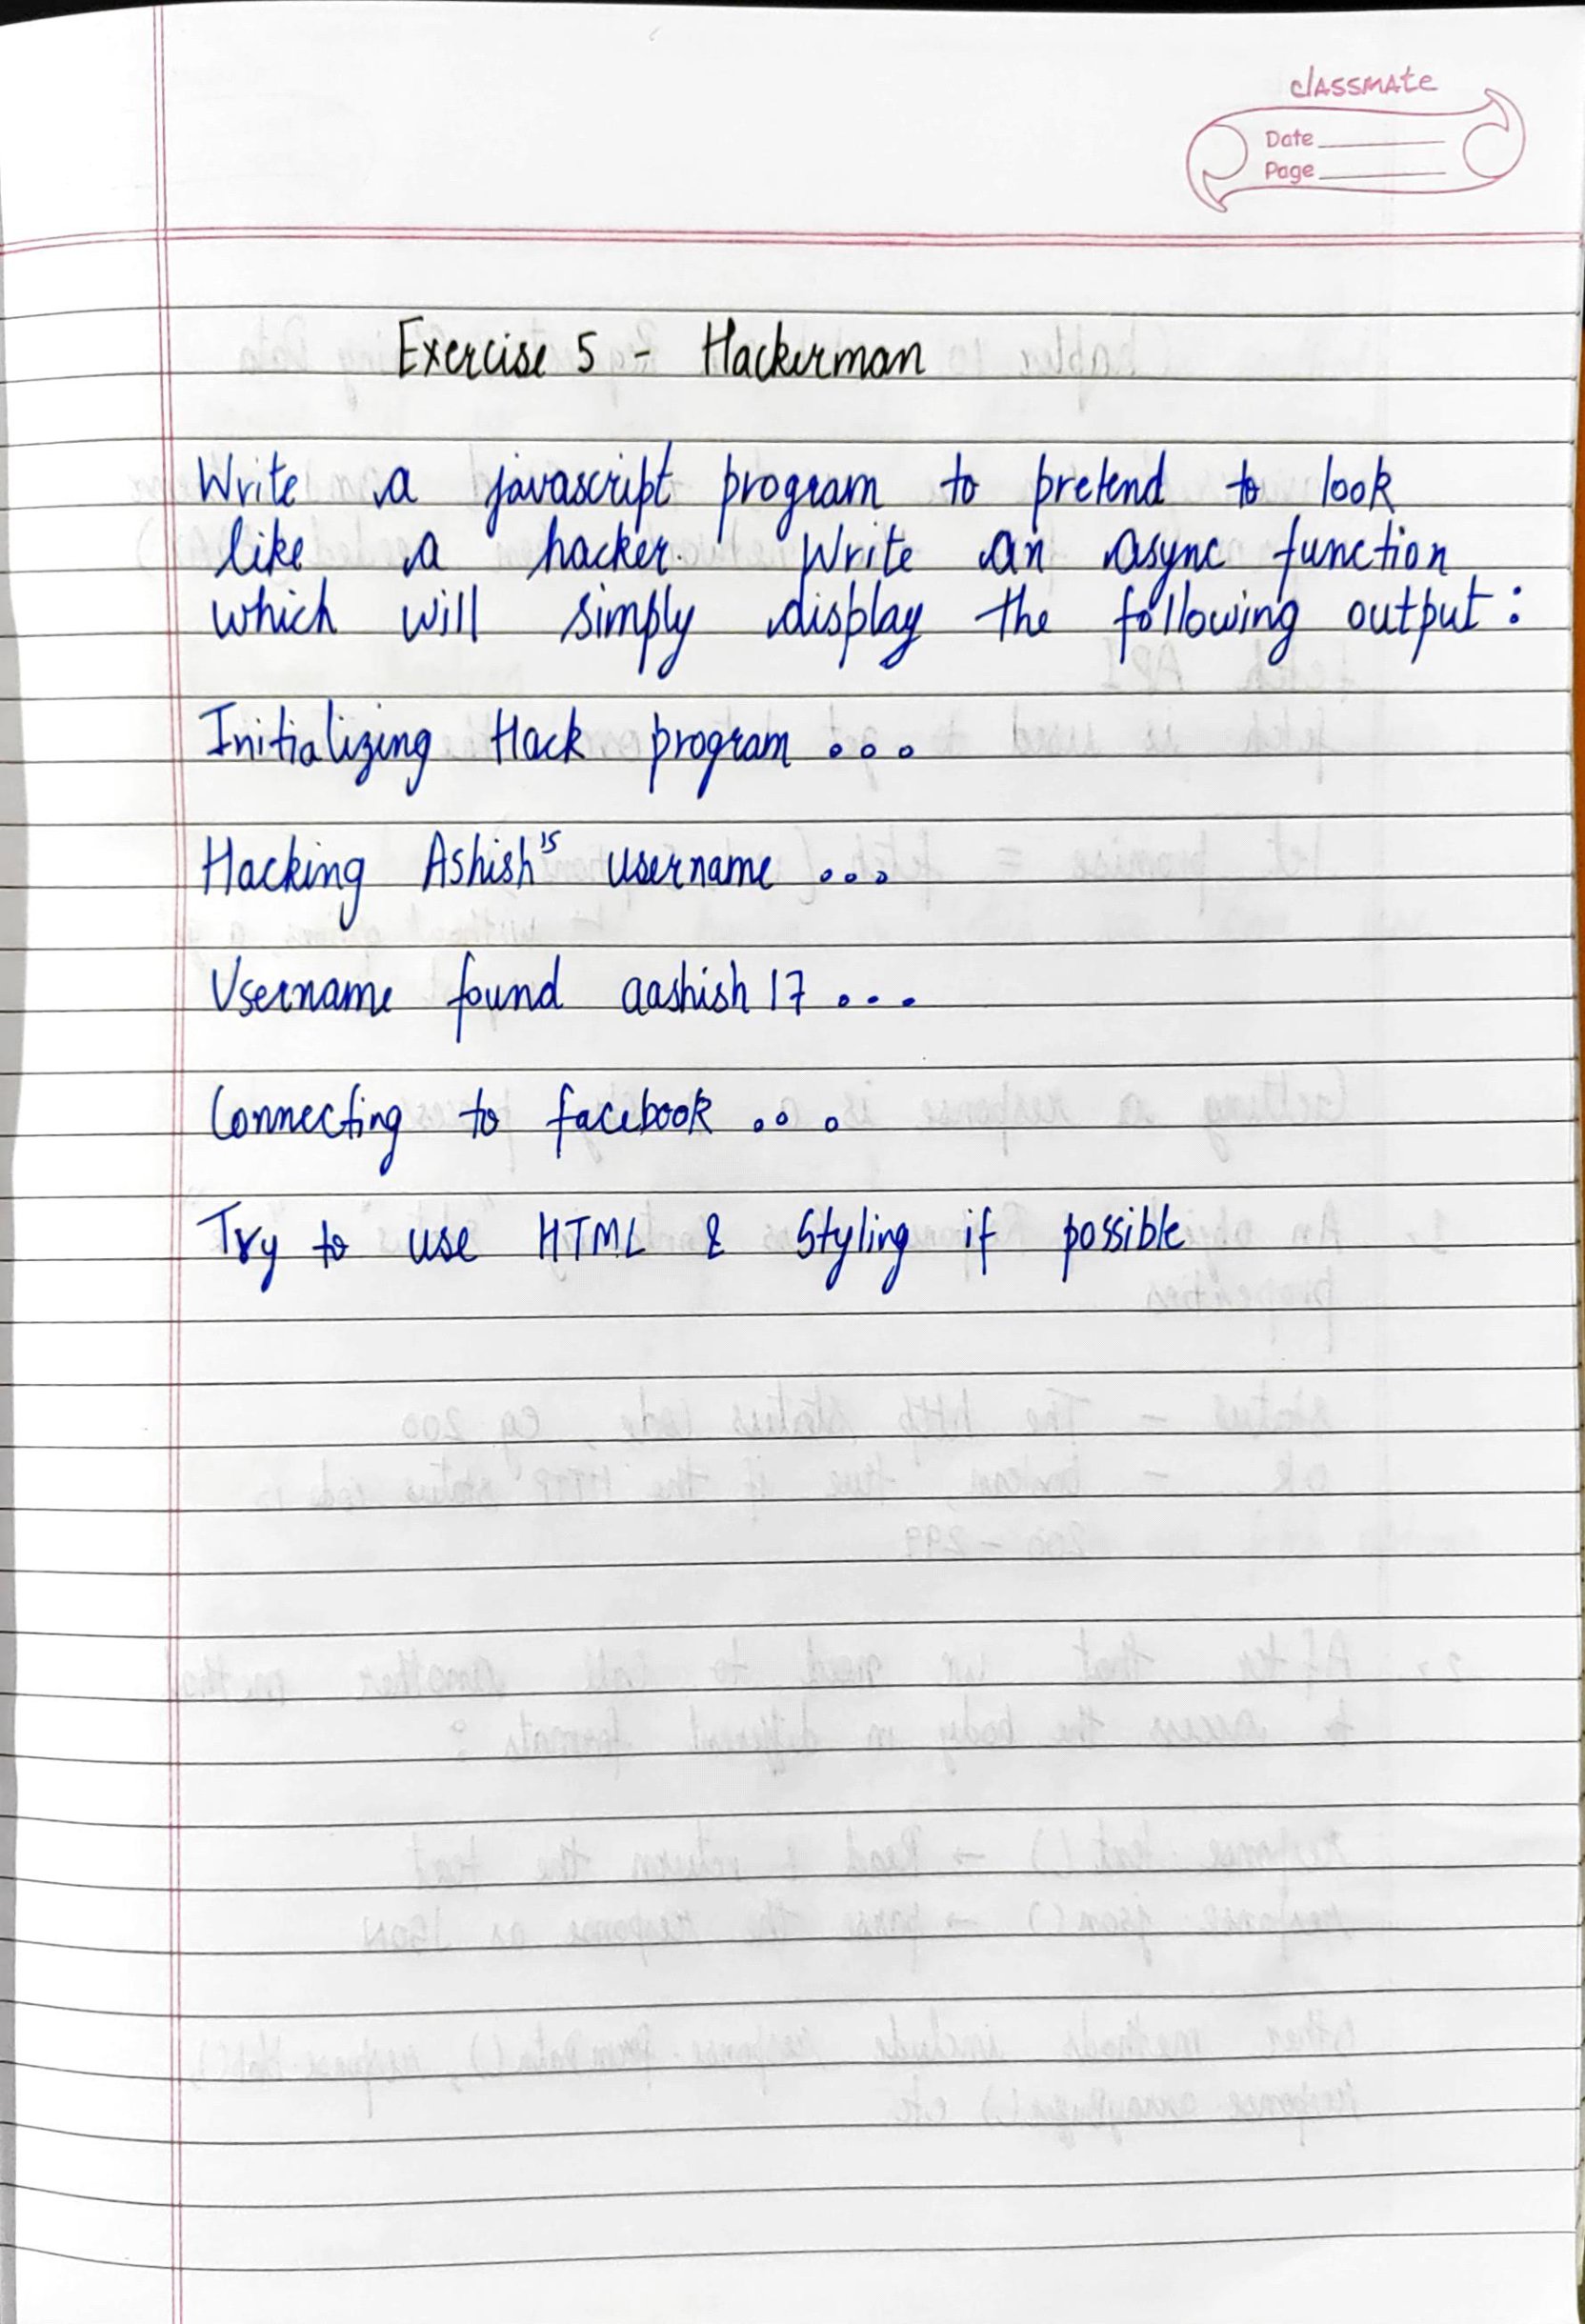 classmate
Date
Page
Exercise 5 - Hackerman
Write a javascript program to pretend to look
like a hacker. Write an async function
which will simply display the following output:
Initializing Hack program ...
Hacking Ashish's username ...
Username found aashish17 ...
Connecting to facebook ...
Try to use HTML & styling if possible